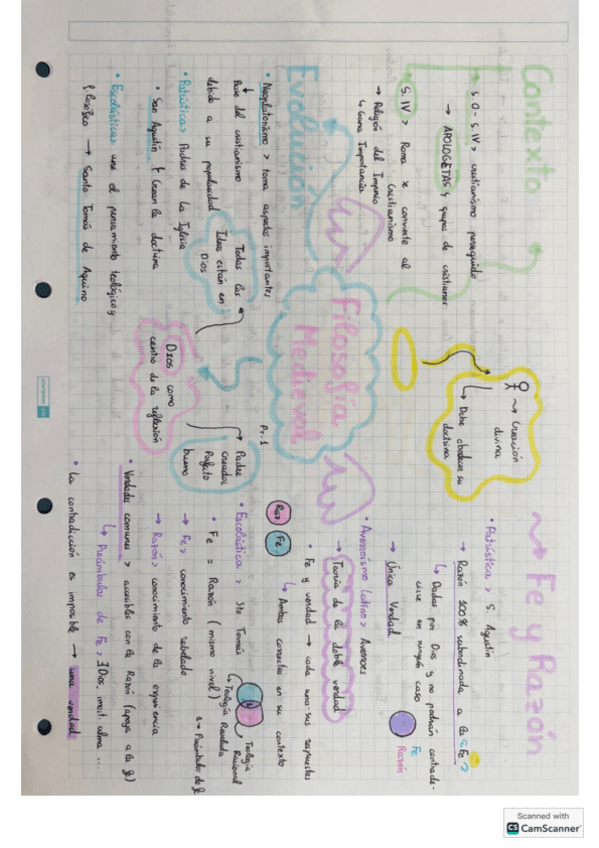 Contexto
• S. 0 - S. IV > cristianismo perseguido
→ APOLOGETAS y grupos de cristianos
S. IV > Roma se convierte al
Cristianismo
→ Religión del Imperio
↳ Gana Importancia
Evolución
• Neoplatonismo > toma aspectos importantes
Base del cristianismo
debido a su popularidad
Todas las
Ideas están en
Dios
• Patrística > Padres de la Iglesia
• San Agustín { Crean la doctrina
• Escolástica: une el pensamiento teológico y
filosófico → Santo Tomás de Aquino
Filosofía
Medieval
Pr. 1
~> Creación
divina
↳ Debe obedecer su
doctrina
Padre
creador
Perfecto
bueno
Dios como
centro de la reflexión
~> Fe y Razón
• Patrística > S. Agustín
→ Razón 100% subordinada a la Fe
↳ Dadas por Dios y no podrán contrade-
cirse en ningún caso
→ Única Verdad
Fe
Razón
• Averroísmo Latino > Averroes
→ Teoría de la doble verdad
• Fe y verdad → cada una sus respuestas
↳ Ambas correctas en su contexto
Raz
Fe
• Escolástica > Sto Tomás
• Fe = Razón (mismo nivel)
Teología
Revelada
Teología
Racional
→ Preámbulos de f
→ Fe > conocimiento revelado
→ Razón > conocimiento de la experiencia
• Verdades comunes > accesibles con la Razón (apoya a la f)
↳ Preámbulos de Fe > ∃ Dios, inmort. alma ...
• La contradicción es imposible → una verdad
Scanned with
CS CamScanner